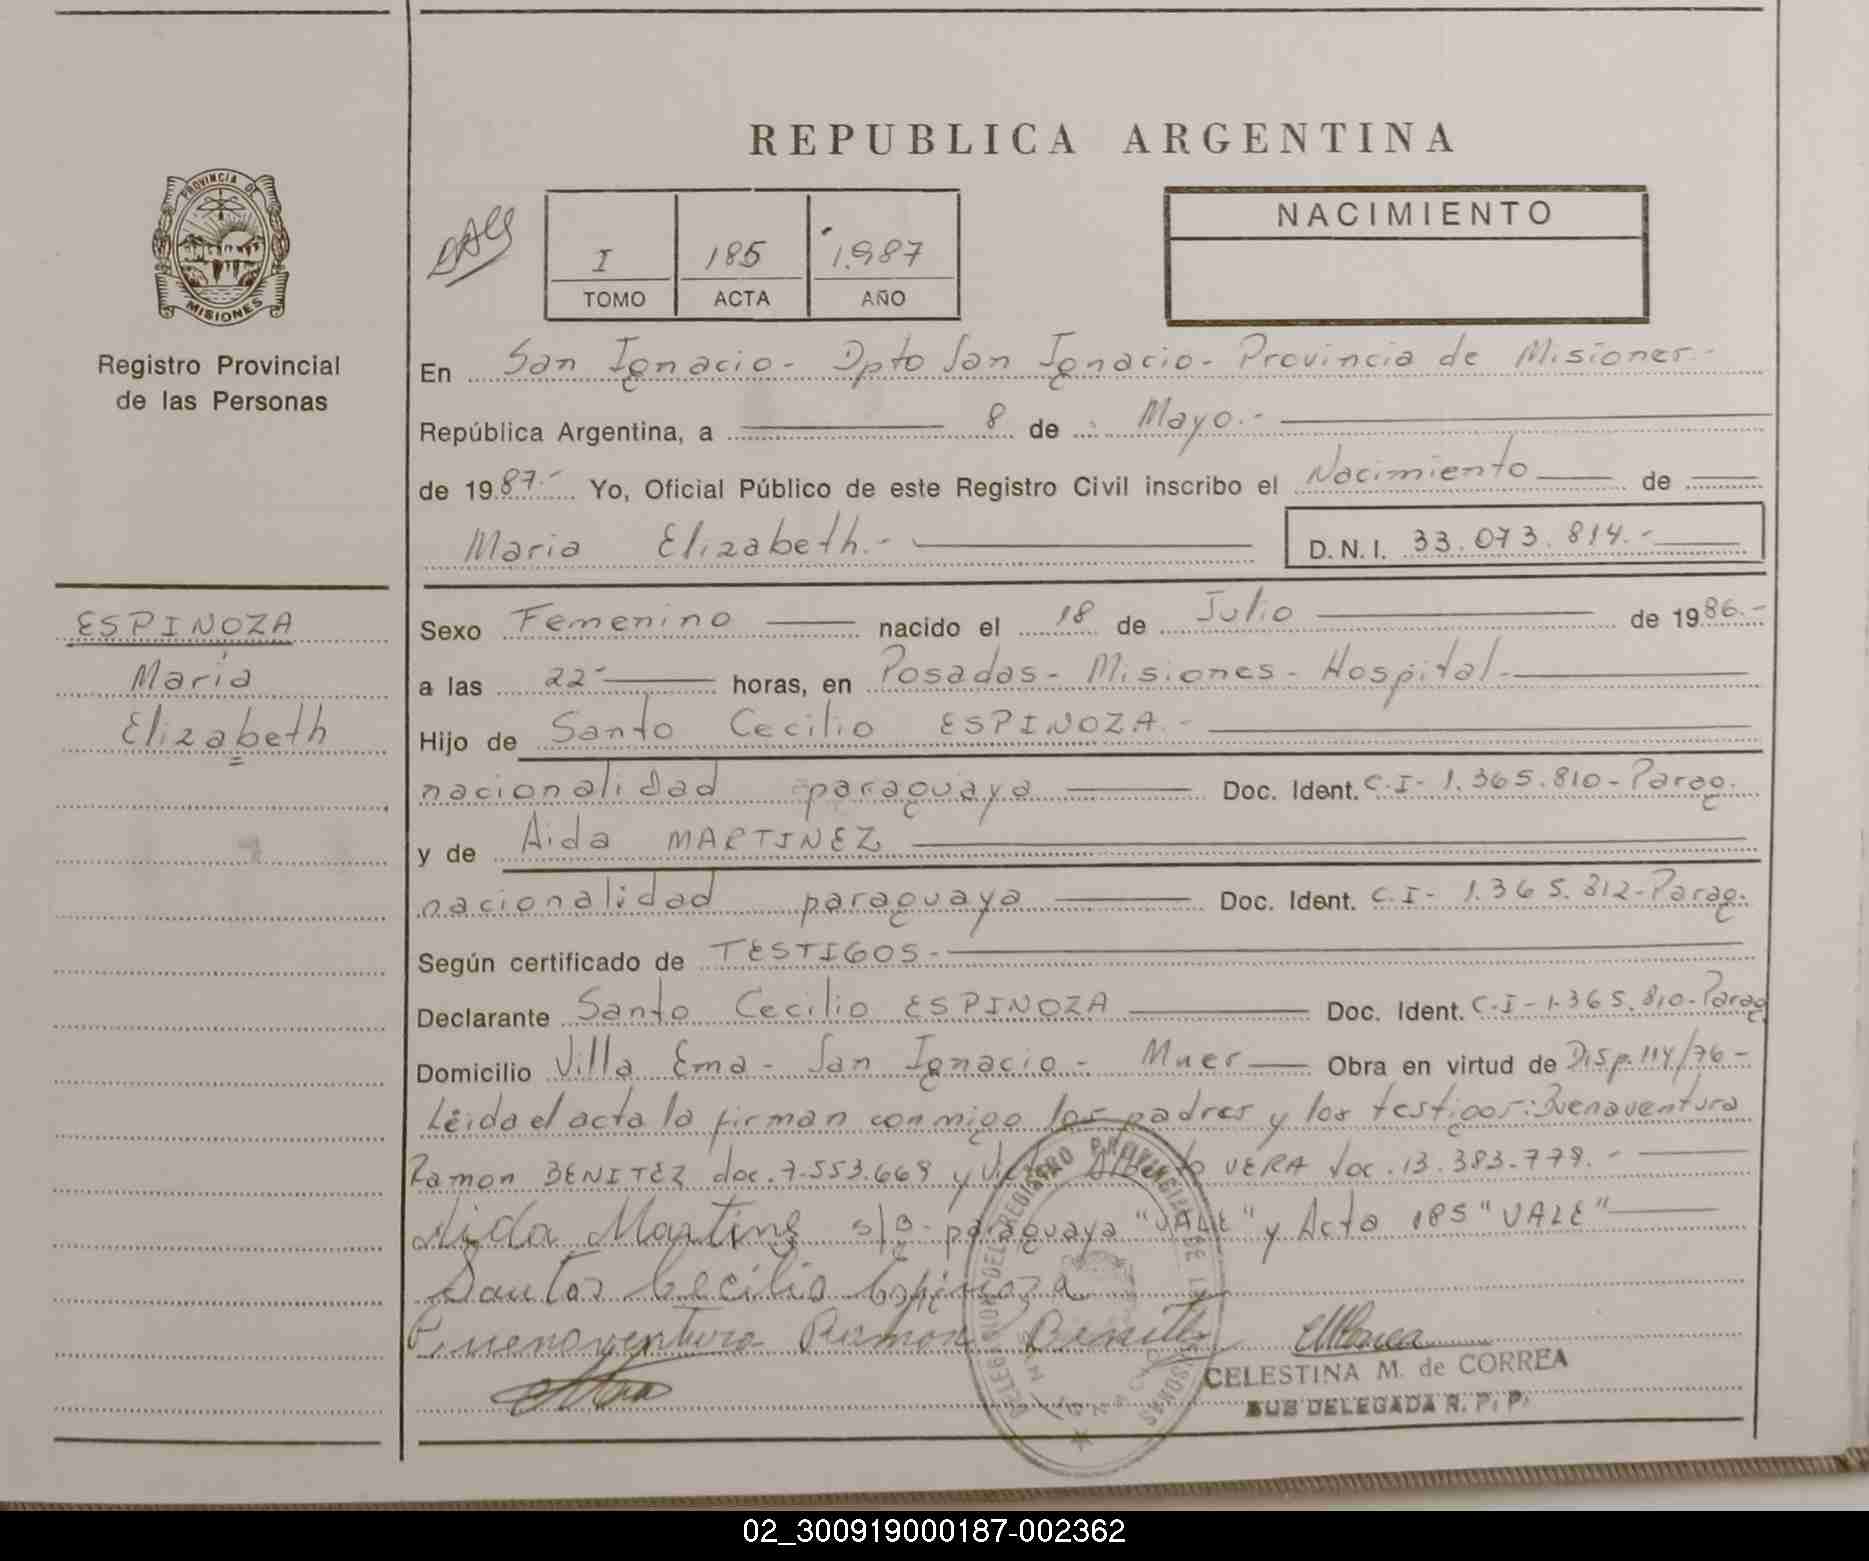 REPUBLICA ARGENTINA
PROVINCIA DE
MISIONES
Registro Provincial
de las Personas
I 185 1.987
TOMO ACTA AÑO
NACIMIENTO
En San Ignacio- Dpto San Ignacio- Provincia de Misiones-
República Argentina, a 8 de Mayo.-
de 1987.- Yo, Oficial Público de este Registro Civil inscribo el Nacimiento de
Maria Elizabeth.- D.N.I. 33.073.814.-
ESPINOZA
María
Elizabeth
Sexo Femenino nacido el 18 de Julio de 1986.-
a las 22- horas, en Posadas- Misiones- Hospital-
Hijo de Santo Cecilio ESPINOZA.-
nacionalidad paraguaya Doc. Ident. C.I- 1.365.810- Parag.
y de Aida MARTINEZ
nacionalidad paraguaya Doc. Ident. C.I- 1.365.812- Parag.
Según certificado de TESTIGOS-
Declarante Santo Cecilio ESPINOZA Doc. Ident. C.I- 1.365.810- Parag
Domicilio Villa Ema- San Ignacio- Mnes Obra en virtud de Disp. 114/76-
Léida el acta la firman conmigo los padres y los testigos: Buenaventura
Ramon BENITEZ doc. 7.553.669 y Alberto VERA doc. 13.383.779.-
Aida Martinez s/g- paraguaya "VALE" y Acta 185 "VALE"
Santos Cecilio Espinoza
Buenaventura Ramon Benitez
CELESTINA M. de CORREA
SUB DELEGADA R. P. P.
DELEGACION DEL REGISTRO PROVINCIAL DE LAS PERSONAS
02_300919000187-002362